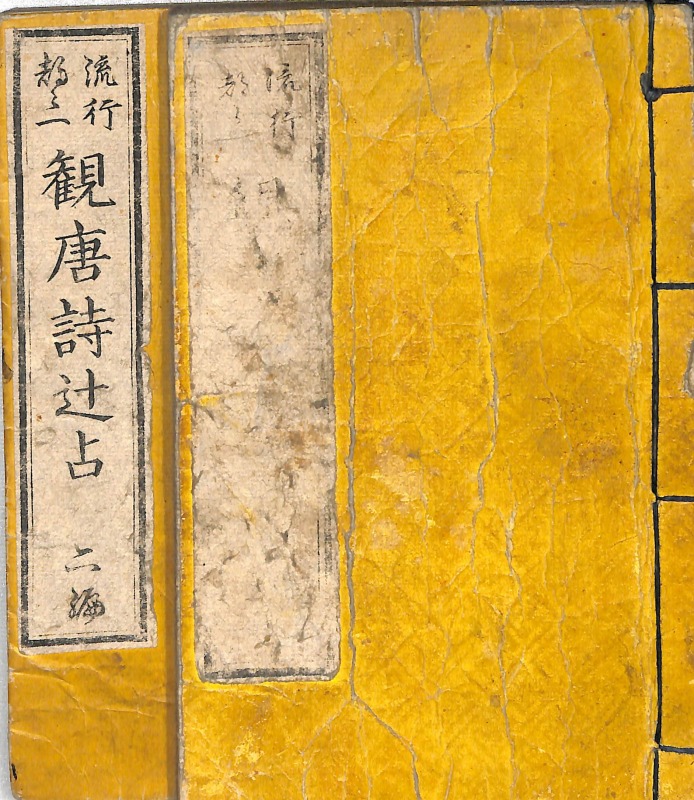 流行
都々一
流行
都々一
観唐詩辻占
二編